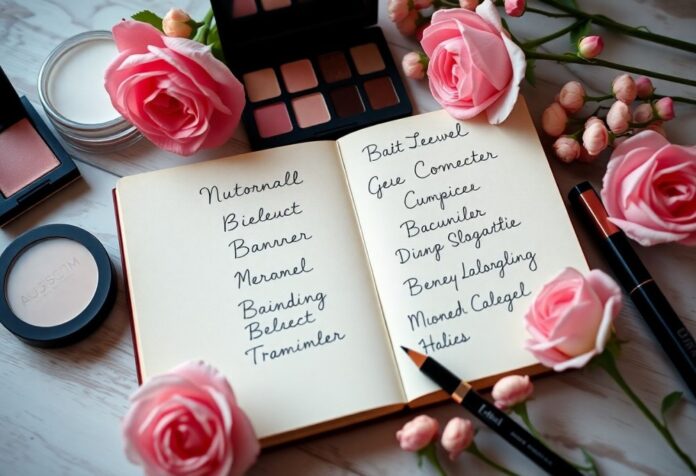 Nutornall
Bieleuct
Banrrer
Meramel
Bainding
Belsect
Tramimler
Bait Jeewel
Geue Comecter
Cumpicee
Bacuniler
Diinp Slogattie
Beney Lalorgling
Mioned Calegel
Halies